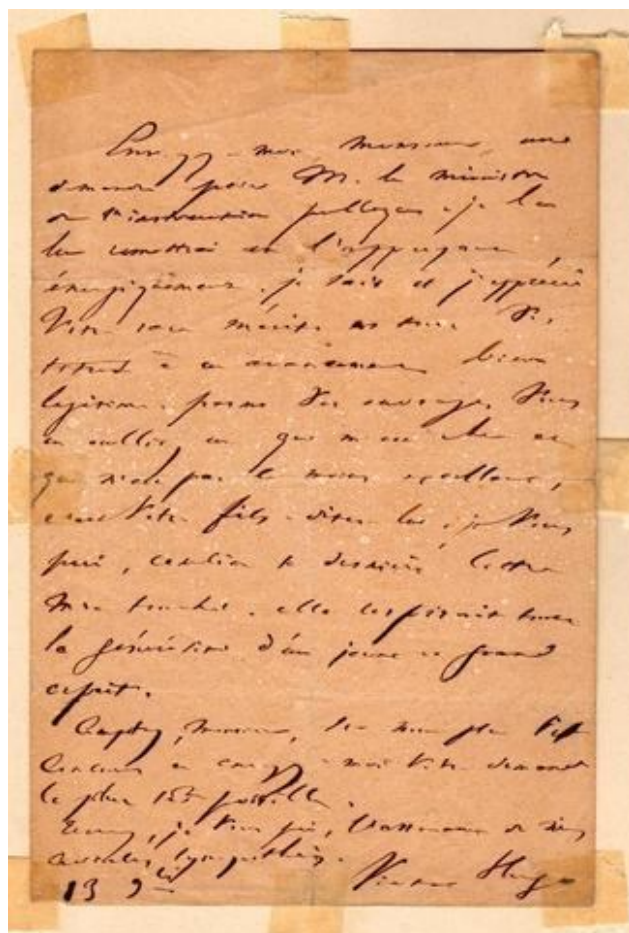 Envoyez-moi, Monsieur, une
demande pour M. le ministre
de l'instruction publique. je la
lui remettrai en l'appuyant
énergiquement. je sais et j'apprécie
votre rare mérite et vos
à un avancement bien
légitime. parmi vos ouvrages, vous
en oubliez un qui m'est cher et
qui n'est pas le moins excellent,
c'est votre fils. dites-lui, je vous
prie, combien sa dernière lettre
m'a touché. elle respirait toute
la d'un jeune et grand
esprit.
Comptez, Monsieur, sur mon plus vif
concours et envoyez-moi votre demande
le plus tôt possible.
Recevez, je vous prie, l'assurance de mes
cordiales sympathies.
Victor Hugo
13 9bre